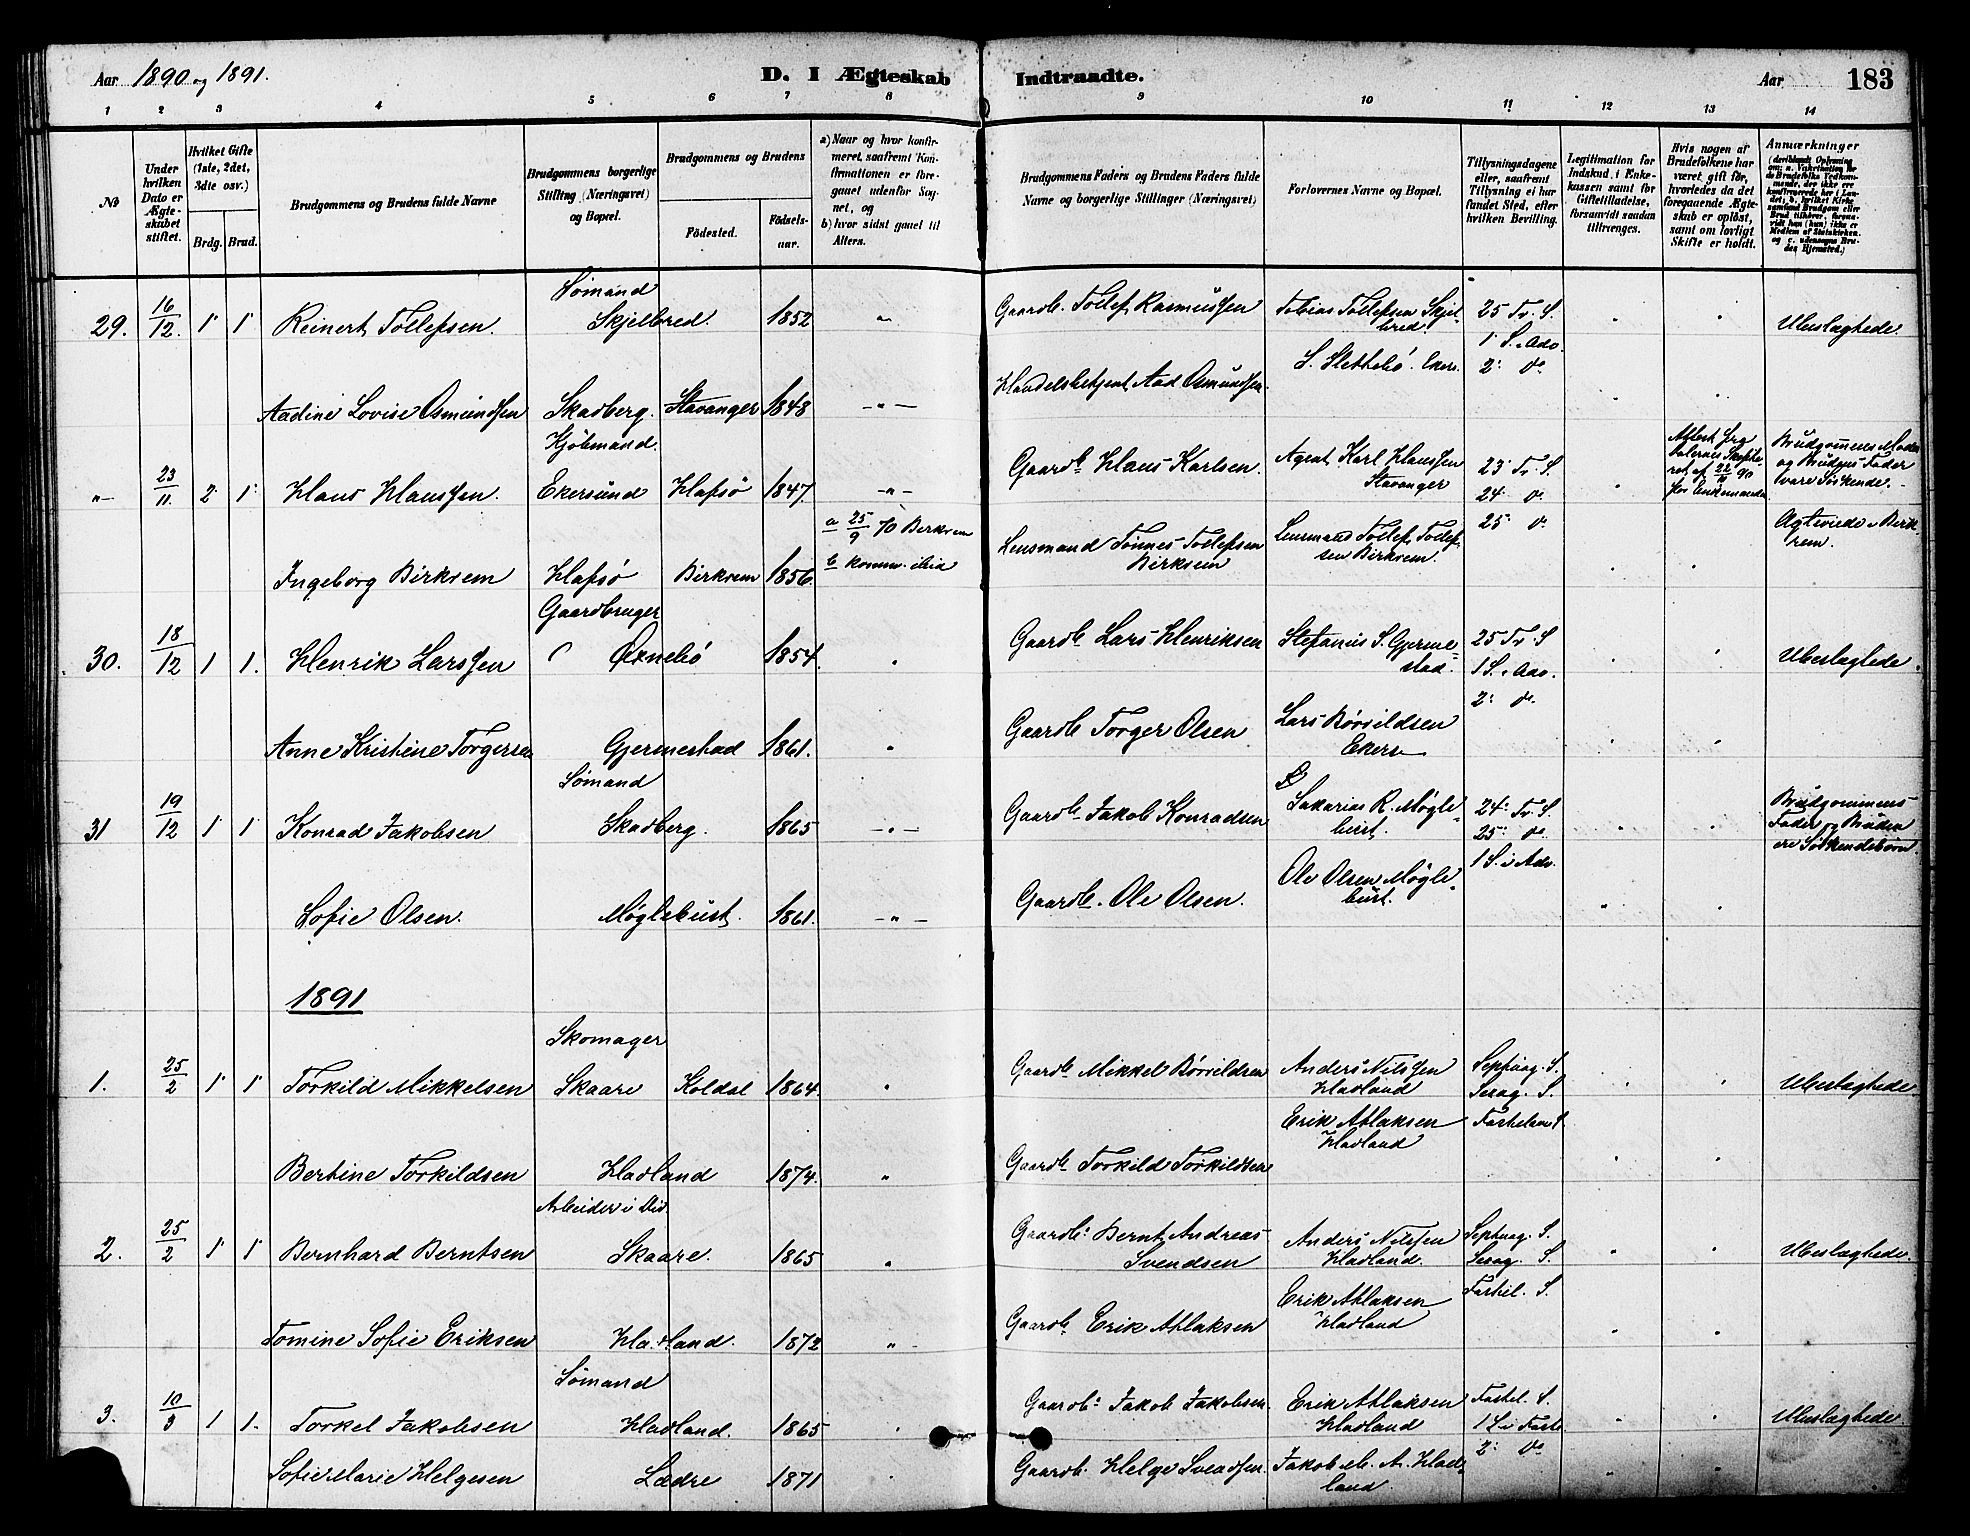 Aar 1890 og 1891.
D. I Ægteskab Indtraadte.
Aar 183
1 2 3 4 5 6 7 8 9 10 11 12 13 14
No
Under hvilken Dato er Ægteskabet stiftet.
Hvilket Gifte (1ste, 2det, 3dte osv.)
Brdg. Brud.
Brudgommens og Brudens fulde Navne
Brudgommens borgerlige Stilling (Næringsvei) og Bopæl.
Brudgommens og Brudens
Fødested.
Fødselsaar.
a) Naar og hvor konfirmeret, saafremt Konfirmationen er foregaaet udenfor Sognet, og
b) hvor sidst gaaet til Alters.
Brudgommens Faders og Brudens Faders fulde Navne og borgerlige Stillinger (Næringsvei)
Forlovernes Navne og Bopæl.
Tillysningsdagene eller, saafremt Tillysning ei har fundet Sted, efter hvilken Bevilling.
Legitimation for Indskud i Enkekassen samt for Giftetilladelse, forsaavidt saadan tiltrænges.
Hvis nogen af Brudefolkene har været gift før, hvorledes da det foregaaende Ægteskab er opløst, samt om lovligt Skifte er holdt.
Anmærkninger
29. 16/12. 1 1 Reinert Tollefsen. Sømand Skjelbred. 1852 " Gaardb. Tollef Rasmussen Tobias Tollefsen Skjelbred. 25 Tr. S. 1 S. i Adv. 2: do Ubeslægtede.
S. Slettebø. Ekers.
Aadine Lovise Osmundsen Skadberg. Stavanger 1848 -"- Handelsbetjent Aad Osmundsen.
"- 23/11. 2 1 Klaus Klaussen. Kjøbmand. Ekersund Hafsø 1847. -"- Gaardb. Klaus Karlsen. Agent Karl Klaussen Stavanger 23: Tr. S. 24: do 25: do
Brudgommens Moder og Brudens Fader vare Søskende.
Ingeborg Birkrem Hafsø Birkrem 1856. a 25/9 70 Birkrem b komm. ibid Lensmand Tønnes Tollefsen Birkrem Lensmand Tollef Tollefsen Birkrem. Ægteviede i Birkrem.
30. 18/12 1 1. Henrik Larssen Gaardbruger Øxnebø 1854. " Gaardb. Lars Henriksen Stefanius S. Gjermestad. 25 Tr. S 1 S. i Adv. 2: do. Ubeslægtede.
Anne Kristine Torgersen Gjermestad 1861. " Gaardb Torger Olsen Lars Børildsen Ekers
31 19/12 1 1 Konrad Jakobsen Sømand Skadberg. 1865 -"- Gaardb. Jakob Konradsen Sakarias R. Møglebust. 24: Tr. S. 25: do. 1 S. i Adv. Brudgommens Fader og Bruden ere Søskendebørn.
Sofie Olsen. Møglebust. 1861. -"- Gaardb. Ole Olsen. Ole Olsen Møglebust.
1891
1. 25/2 1 1 Torkild Mikkelsen Skomager Skaare Koldal 1864. " Gaardb. Mikkel Børildsen Anders Nilssen Hadland Septuag. S. Sexag. S. Fastelavn S. Ubeslægtede.
Erik Atlaksen Hadland
Bertine Torkildsen Hadland 1874. " Gaardb. Torkild Torkildsen
2. 25/2 1 1 Bernhard Berntsen Arbeider i Skaare. 1865 " Gaardb. Bernt Andreas Svendsen Anders Nilssen Hadland. Septuag. S. Sexag. S. Fastel. S. Ubeslægtede.
Erik Atlaksen Hadland
Tomine Sofie Eriksen Hadland. 1872 " Gaardb. Erik Atlaksen
3. 10/3 1 1. Torkel Jakobsen Sømand Hadland. 1865 Gaardb. Jakob Jakobsen Erik Atlaksen Hadland Fastel. S. 1 S. i Faste 2: do Ubeslægtede.
Sofie Marie Helgesen Lædre 1871 Gaardb. Helge Svendsen Jakob A. Hadland.